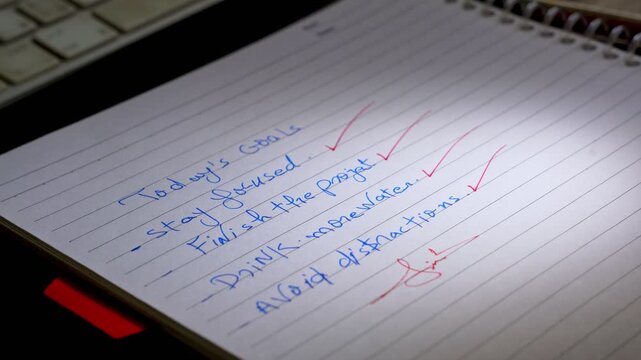 Today's Goals
- Stay focused. ✓
- Finish the projet. ✓
- Drink more water. ✓
- Avoid distractions. ✓